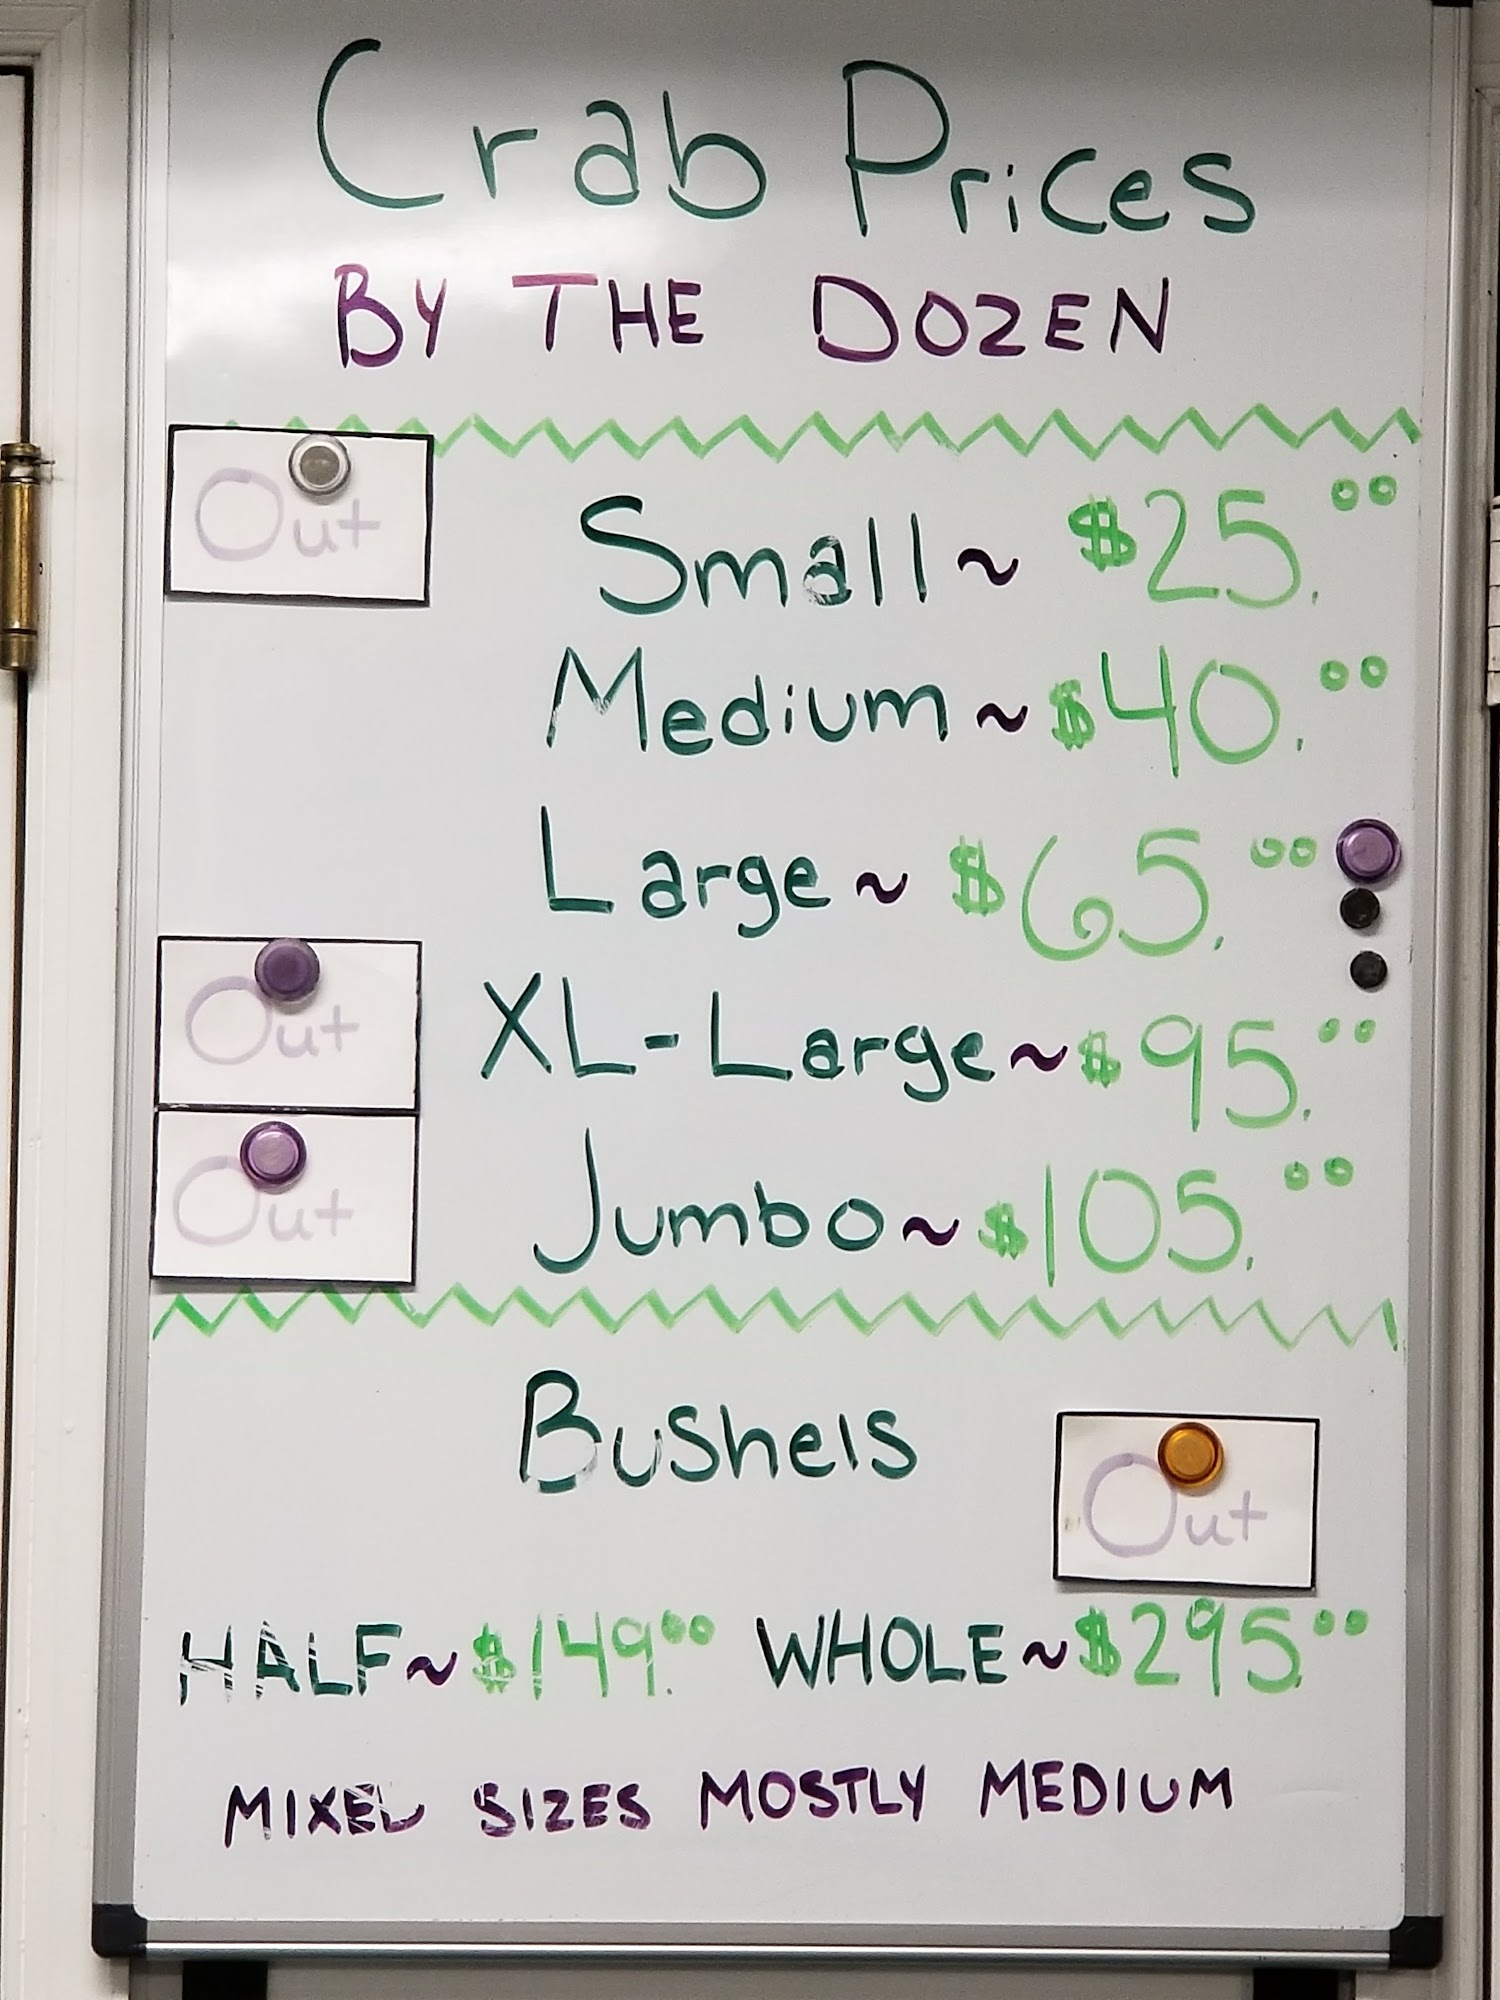 Crab Prices
BY THE DOZEN
Out
Small ~ $25.00
Medium ~ $40.00
Large ~ $65.00
Out
XL-Large ~ $95.00
Out
Jumbo ~ $105.00
Bushels
Out
HALF ~ $149.00 WHOLE ~ $295.00
MIXED SIZES MOSTLY MEDIUM